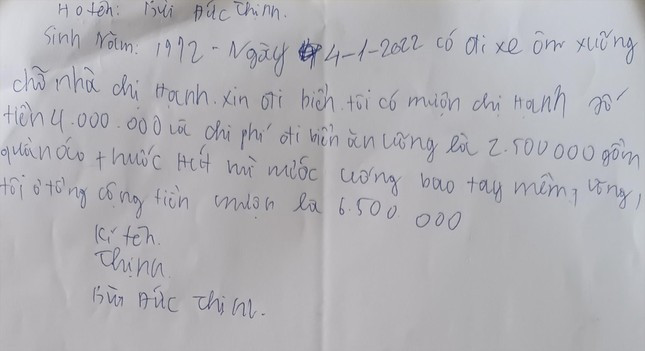 Họ tên: Bùi Đức Thịnh.
Sinh Năm: 1972 - Ngày 4-1-2022 có đi xe ôm xuống
chỗ nhà chị Hạnh. xin đi biển. tôi có mượn chị Hạnh số
tiền 4.000.000 là chi phí đi biển ăn uống là 2.500000 gồm
quần áo thuốc Hút mì nước uống bao tay mềm, võng,
tôi ở tổng cộng tiền mượn là 6.500 000
kí tên.
Thịnh
Bùi Đức Thịnh.